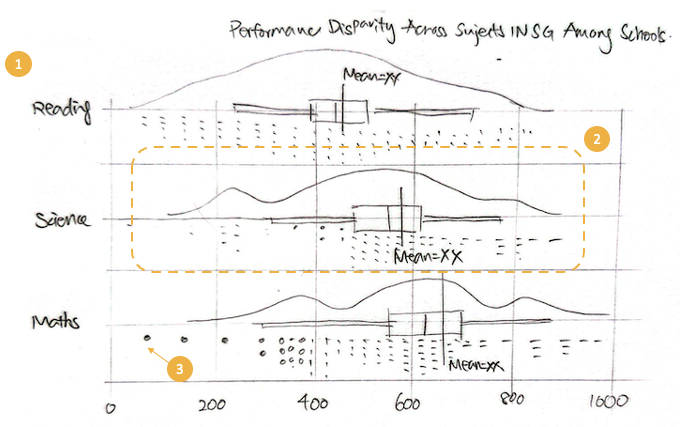 Performance Disparity Across Sujects IN SG Among Schools.
1
Mean=XX
Reading
2
Science
Mean=XX
Maths
3
Mean=XX
0 200 400 600 800 1000